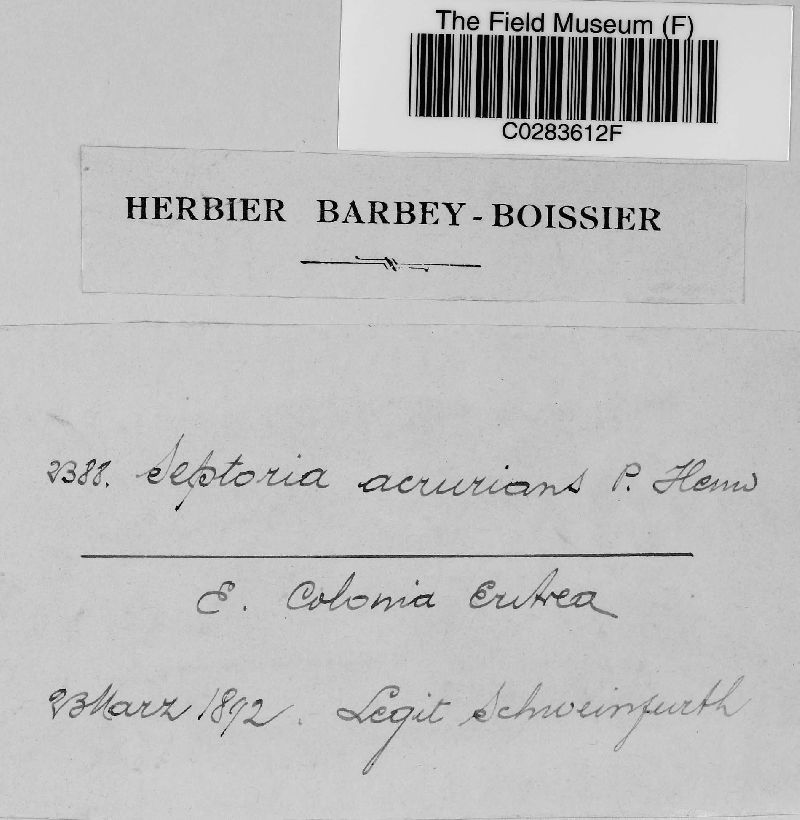 The Field Museum (F)
C0283612F
HERBIER BARBEY-BOISSIER
2388. Septoria acrurians P. Henn
E. Colonia Eritrea
23 Marz 1892. Legit Schweinfurth